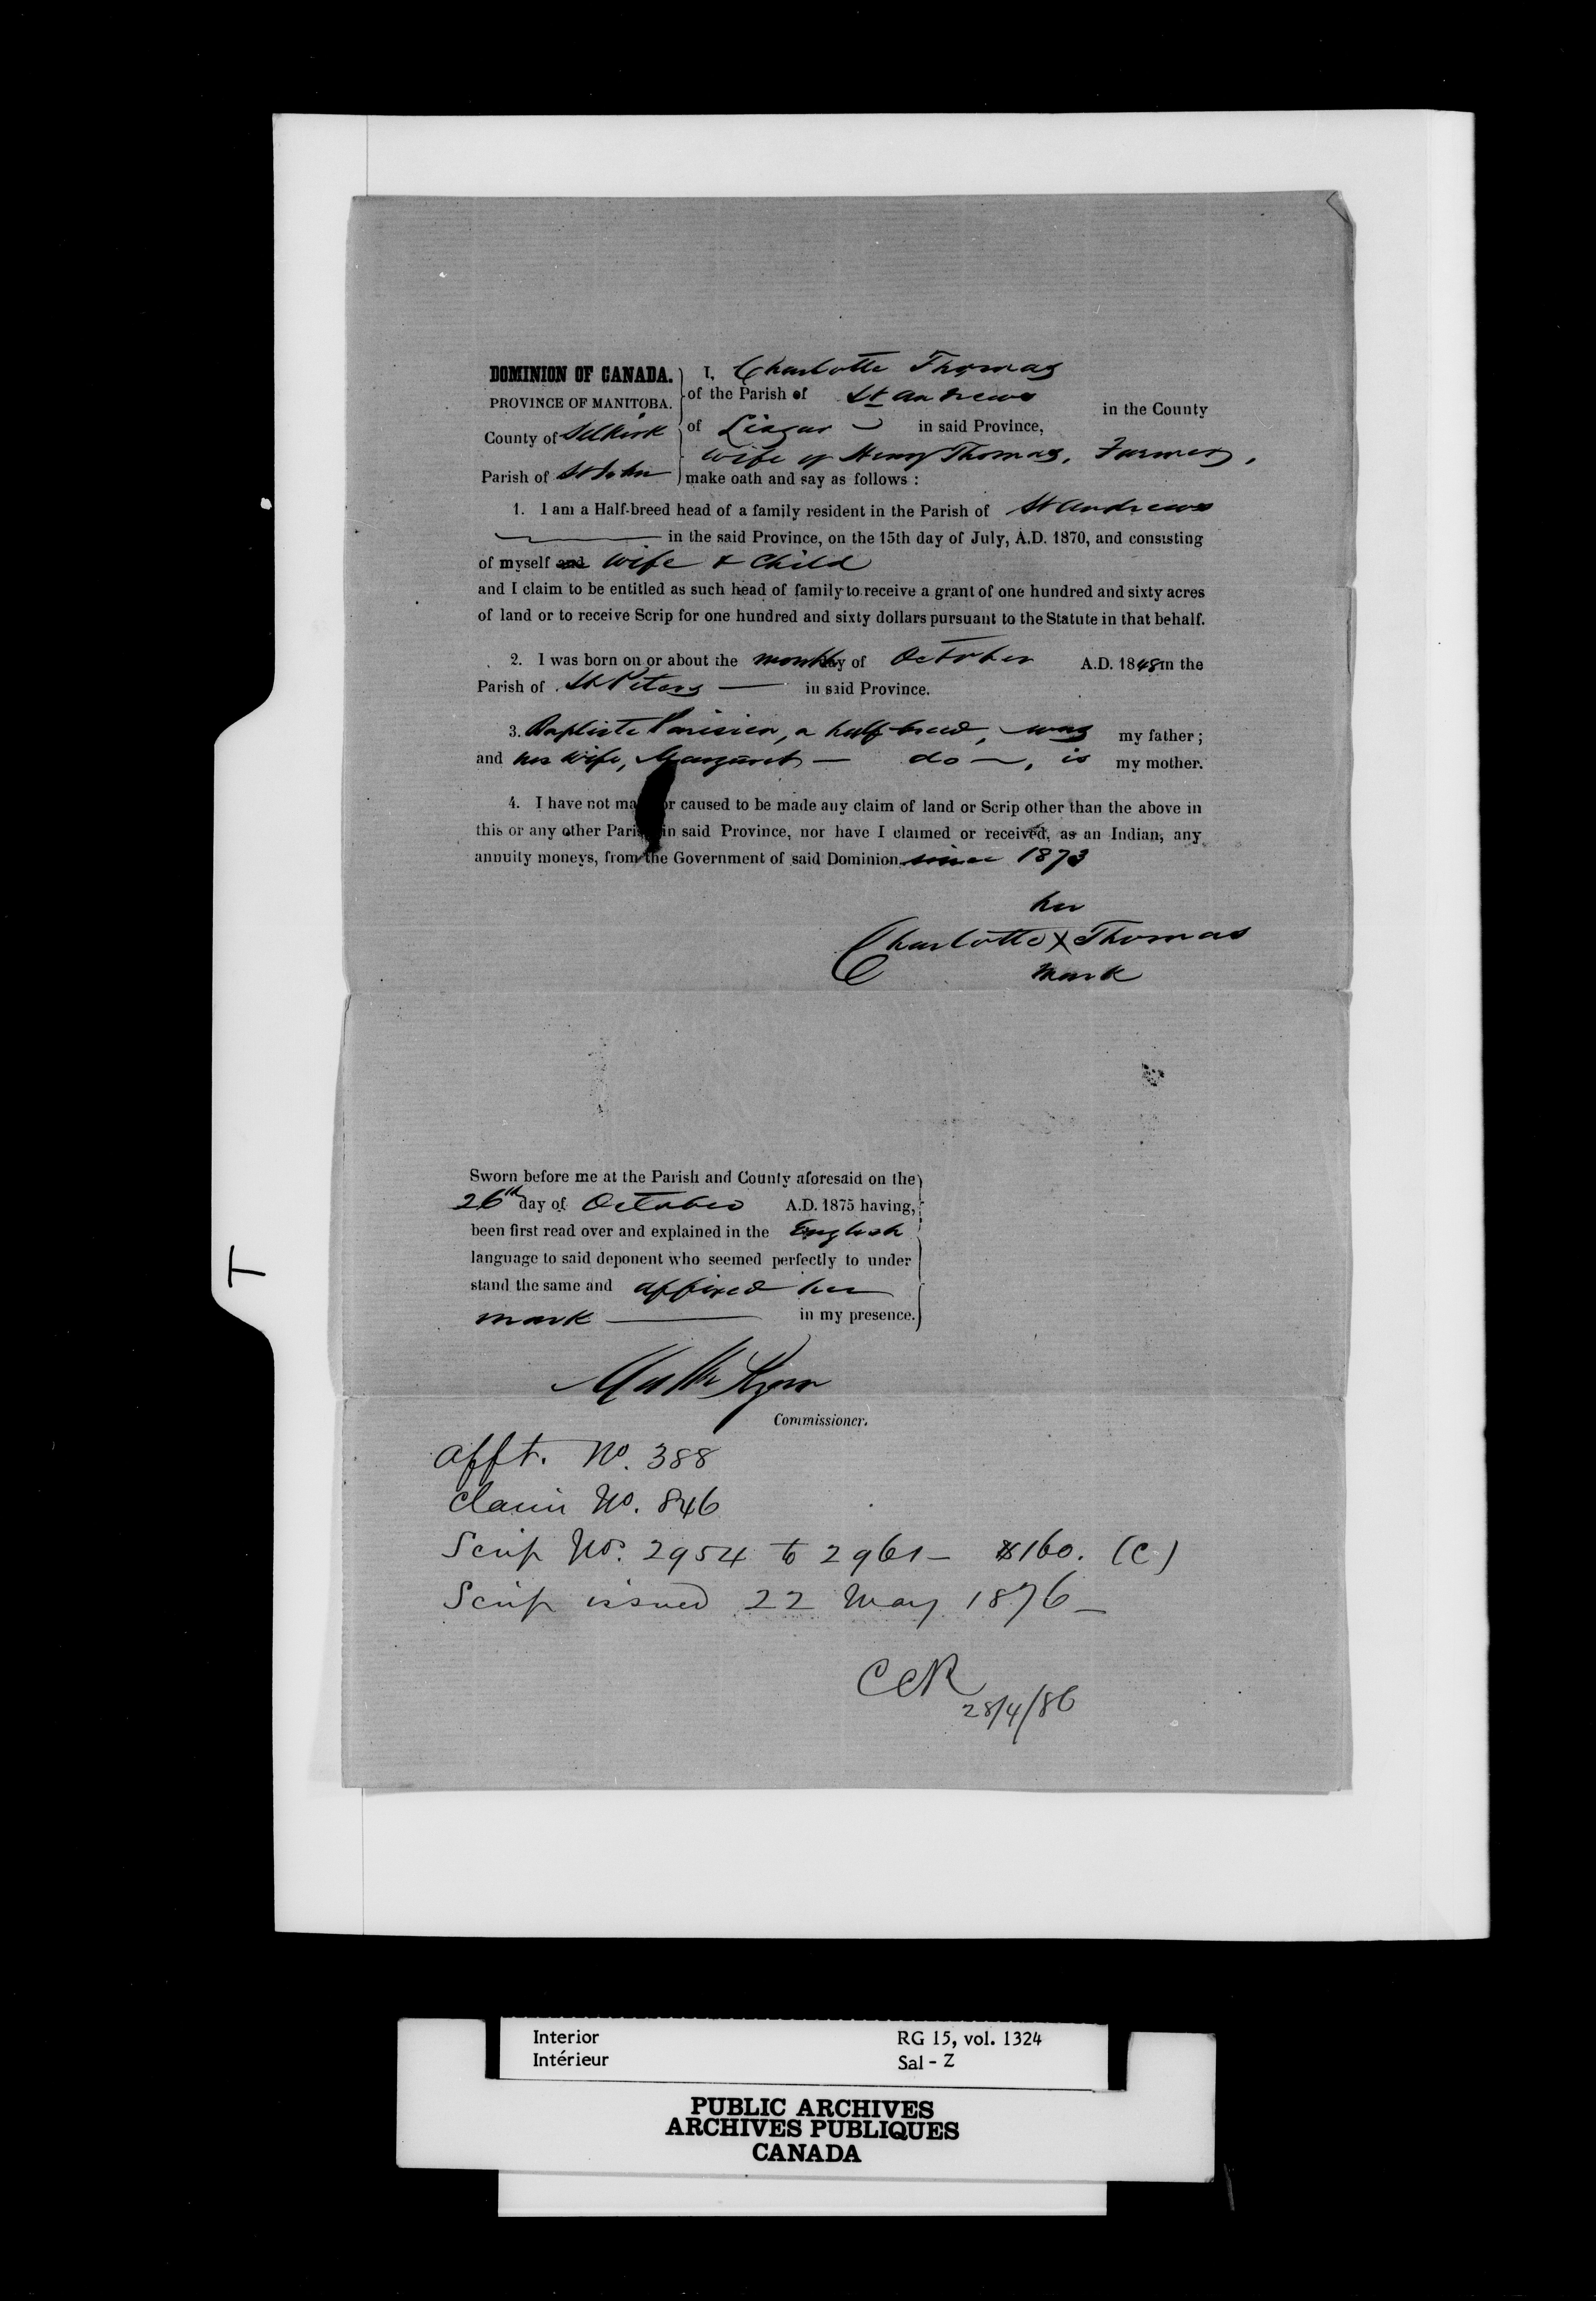 DOMINION OF CANADA.
PROVINCE OF MANITOBA.
County of Selkirk
Parish of St John
I, Charlotte Thomas
of the Parish of St Andrews in the County
of Lisgar in said Province,
Wife of Henry Thomas, Farmer,
make oath and say as follows :
1. I am a Half-breed head of a family resident in the Parish of St Andrews
in the said Province, on the 15th day of July, A.D. 1870, and consisting
of myself and Wife & Child
and I claim to be entitled as such head of family to receive a grant of one hundred and sixty acres
of land or to receive Scrip for one hundred and sixty dollars pursuant to the Statute in that behalf.
2. I was born on or about the month day of October A.D. 1848 in the
Parish of St Peters in said Province.
3. Baptiste Parisien, a half breed, was my father ;
and his wife, Margaret do , is my mother.
4. I have not ma or caused to be made any claim of land or Scrip other than the above in
this or any other Paris in said Province, nor have I claimed or received, as an Indian, any
annuity moneys, from the Government of said Dominion since 1873
her
Charlotte X Thomas
mark
Sworn before me at the Parish and County aforesaid on the
26th day of October A.D. 1875 having,
been first read over and explained in the English
language to said deponent who seemed perfectly to under
stand the same and affixed her
mark in my presence.
Matt. Ryan
Commissioner.
Afft. No. 388
Claim No. 846
Scrip Nos. 2954 to 2961 – $160. (C)
Scrip issued 22 May 1876 –
CCR
28/4/86
T
Interior RG 15, vol. 1324
Intérieur Sal - Z
PUBLIC ARCHIVES
ARCHIVES PUBLIQUES
CANADA